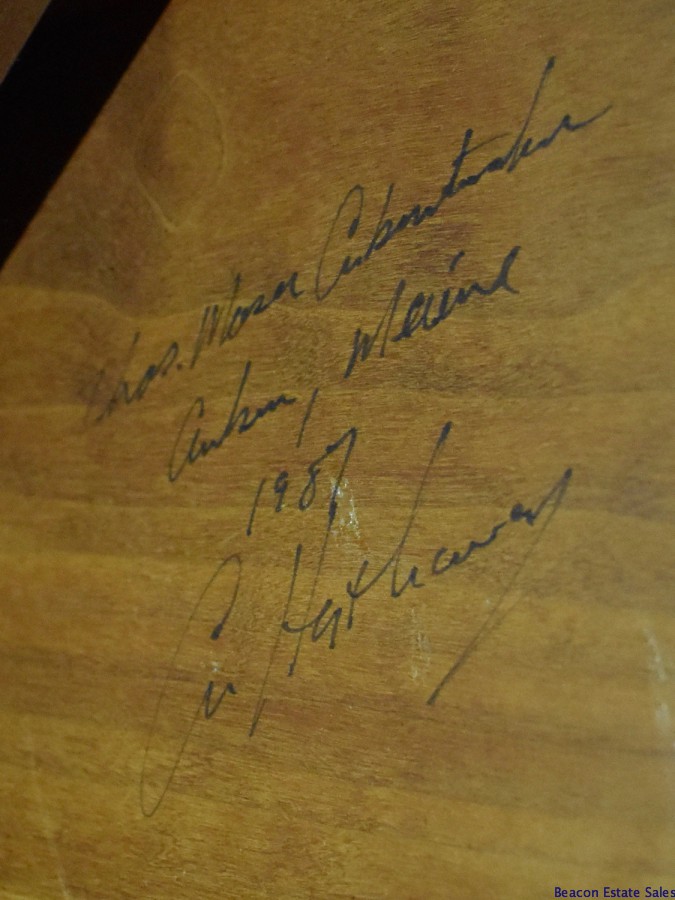 Thos. Moser Cabinetmaker
Auburn, Maine
1987
Hathaway
Beacon Estate Sales